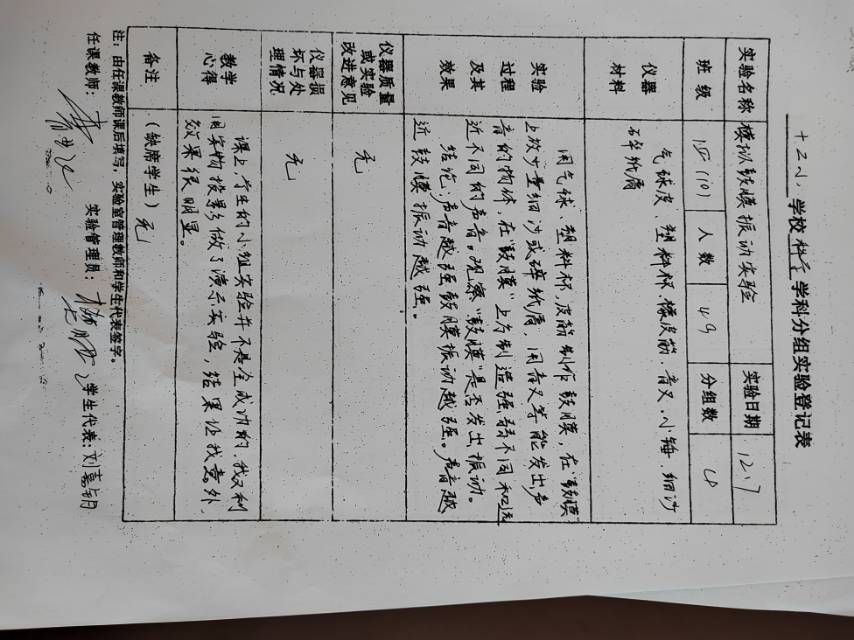 十二小 学校 科学 学科分组实验登记表
实验名称 模拟鼓膜振动实验 实验日期 12.7
班级 四(10) 人数 49 分组数
仪器材料 气球皮、塑料杯、橡皮筋、音叉、小锤、细沙
碎纸屑
实验过程及其效果 用气球、塑料杯、皮筋制作鼓膜，在“鼓膜”
上放少量细沙或碎纸屑，用音叉等能发出声
音的物体，在“鼓膜”上方制造强弱不同和远
近不同的声音。观察“鼓膜”是否发出振动。
结论：声音越强鼓膜振动越强。声音越
近鼓膜振动越强。
仪器质量或实验改进意见 无
仪器损坏与处理情况 无
教学心得 课上，学生的小组实验并不是全成功的，我又利
用实物投影做了演示实验，结果让我意外，
效果很明显。
备注 （缺席学生）无
注：由任课教师课后填写，实验室管理教师和学生代表签字。
任课教师： 实验管理员： 学生代表：刘嘉